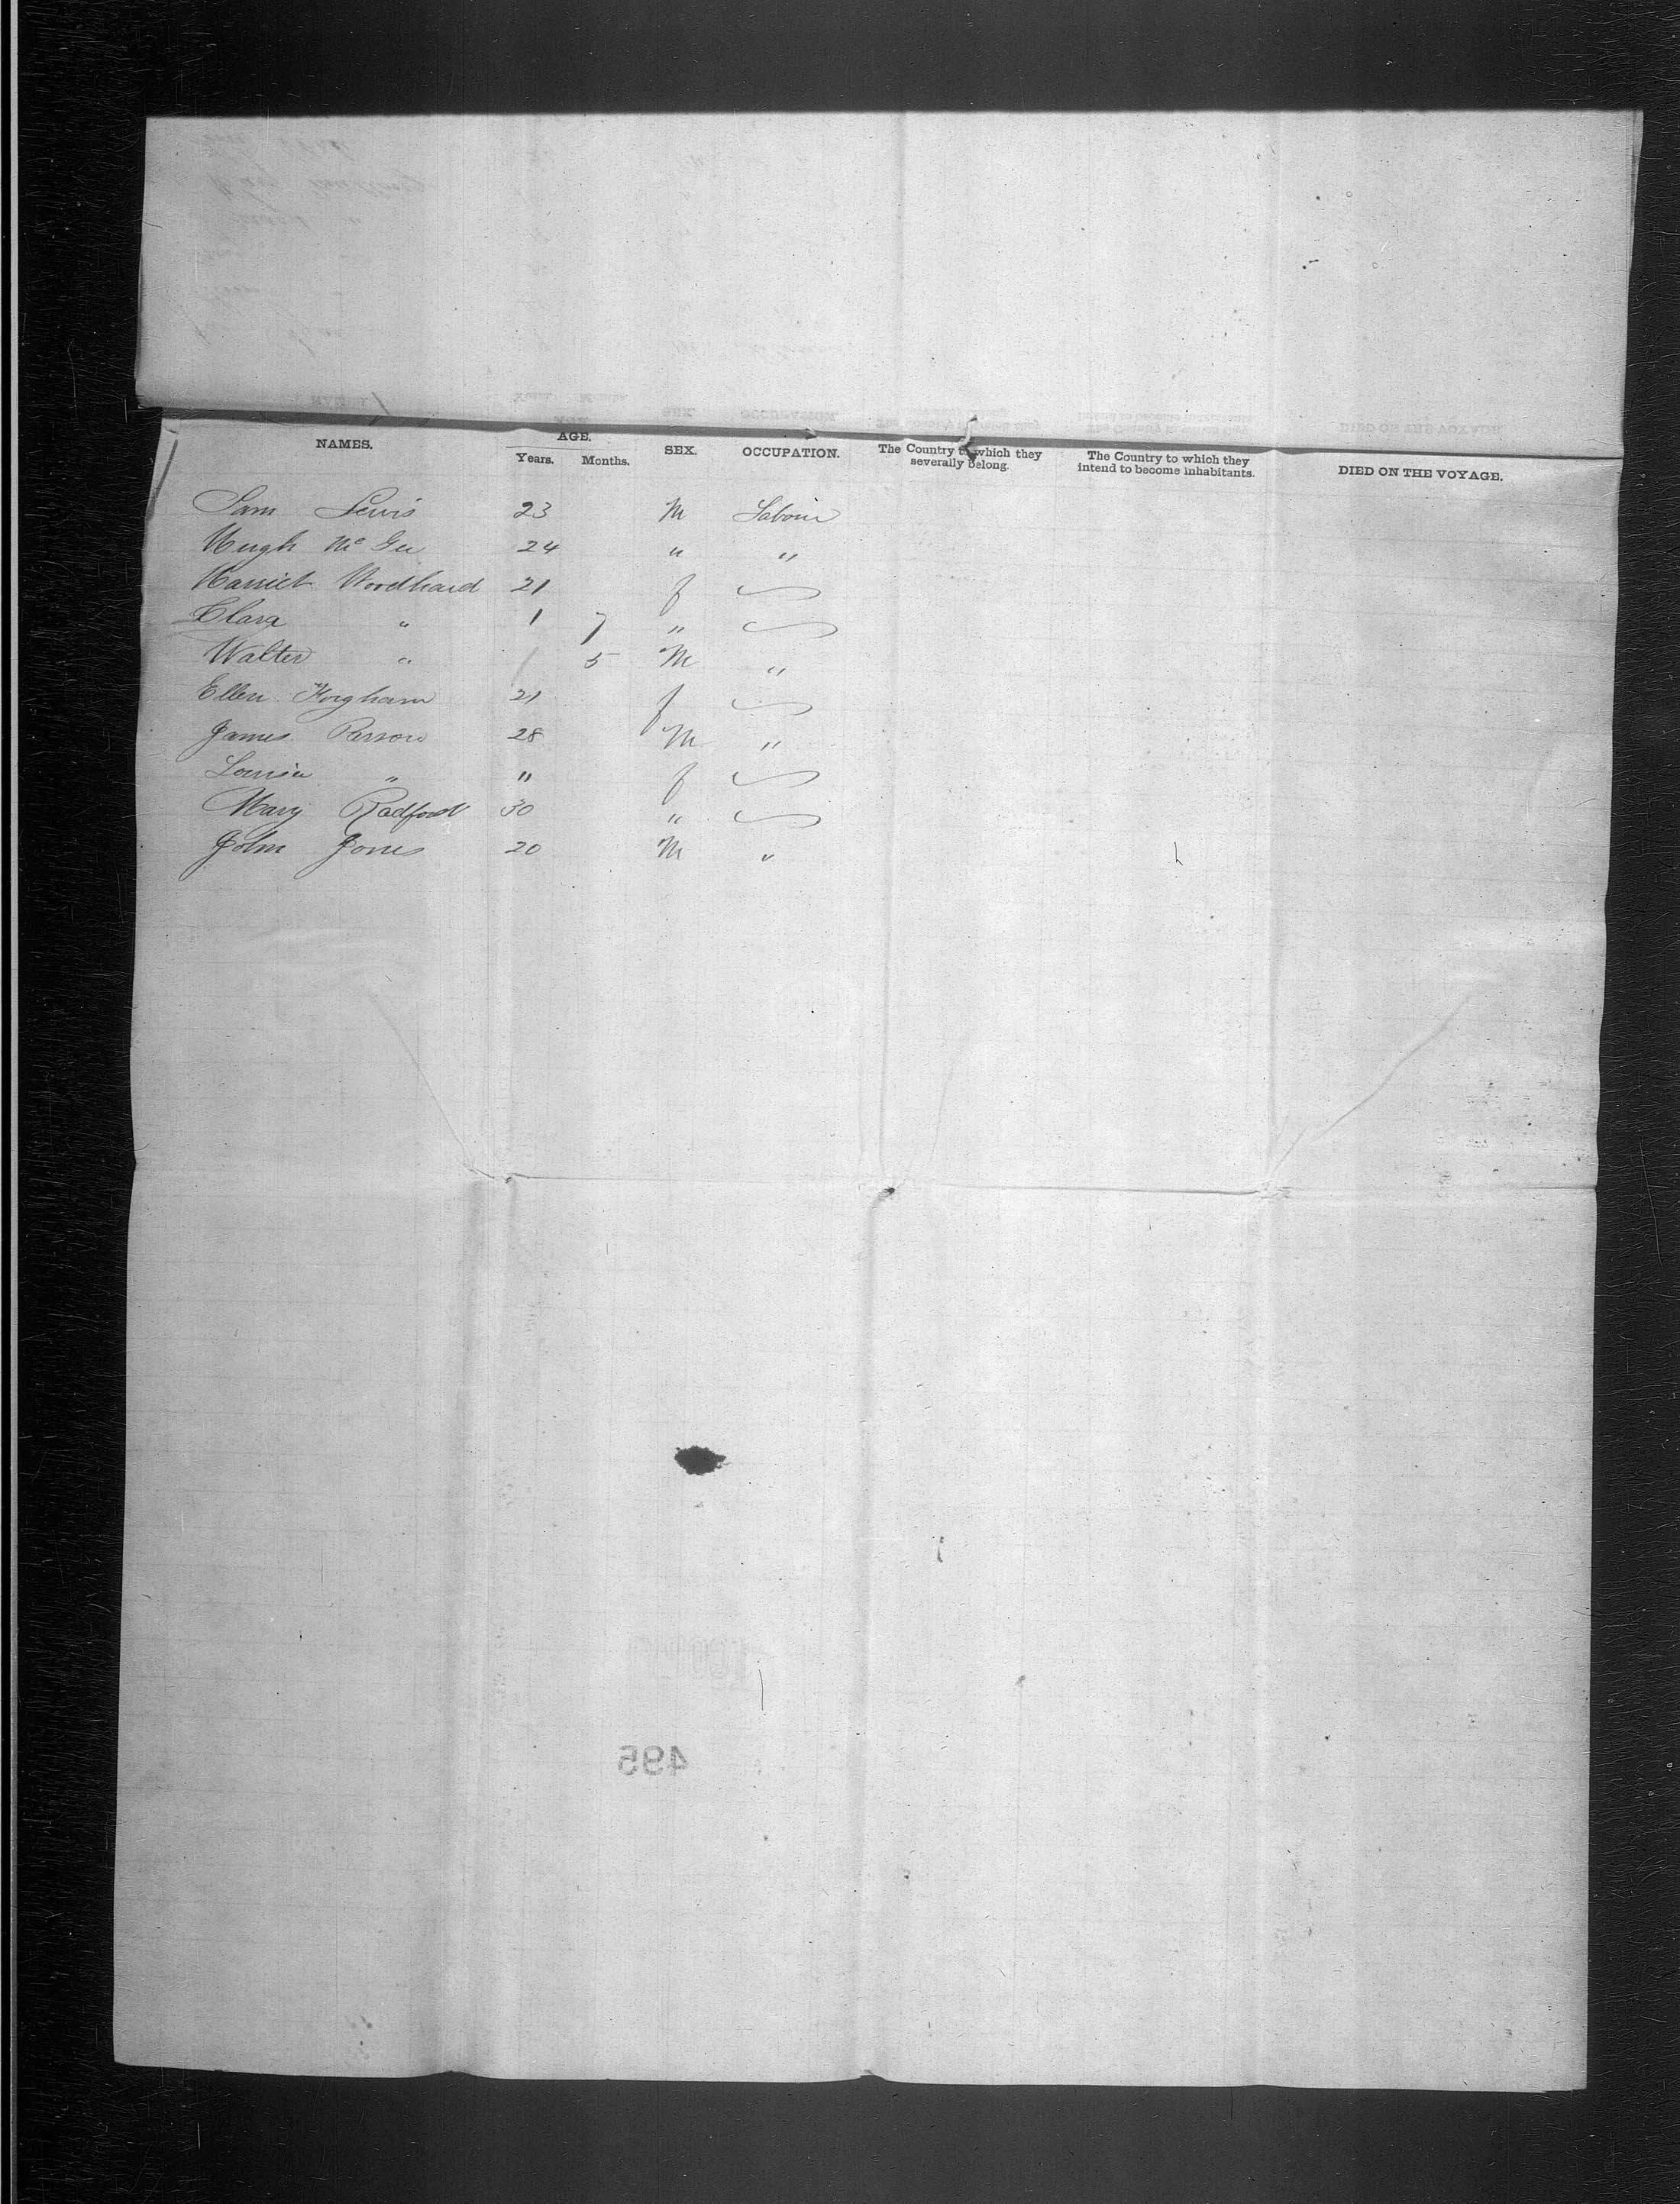 NAMES. AGE. SEX. OCCUPATION. The Country to which they severally belong. The Country to which they intend to become inhabitants. DIED ON THE VOYAGE.
Years. Months.
Sam Lewis 23 M Labour
Hugh Mc Gee 24 " "
Harriet Woodhard 21 f
Clara " 1 7 "
Walter " / 5 M "
Ellen 21 f
James Parson 28 M "
Louisa " " f
Mary Radford 30 "
John Jones 20 M "
495